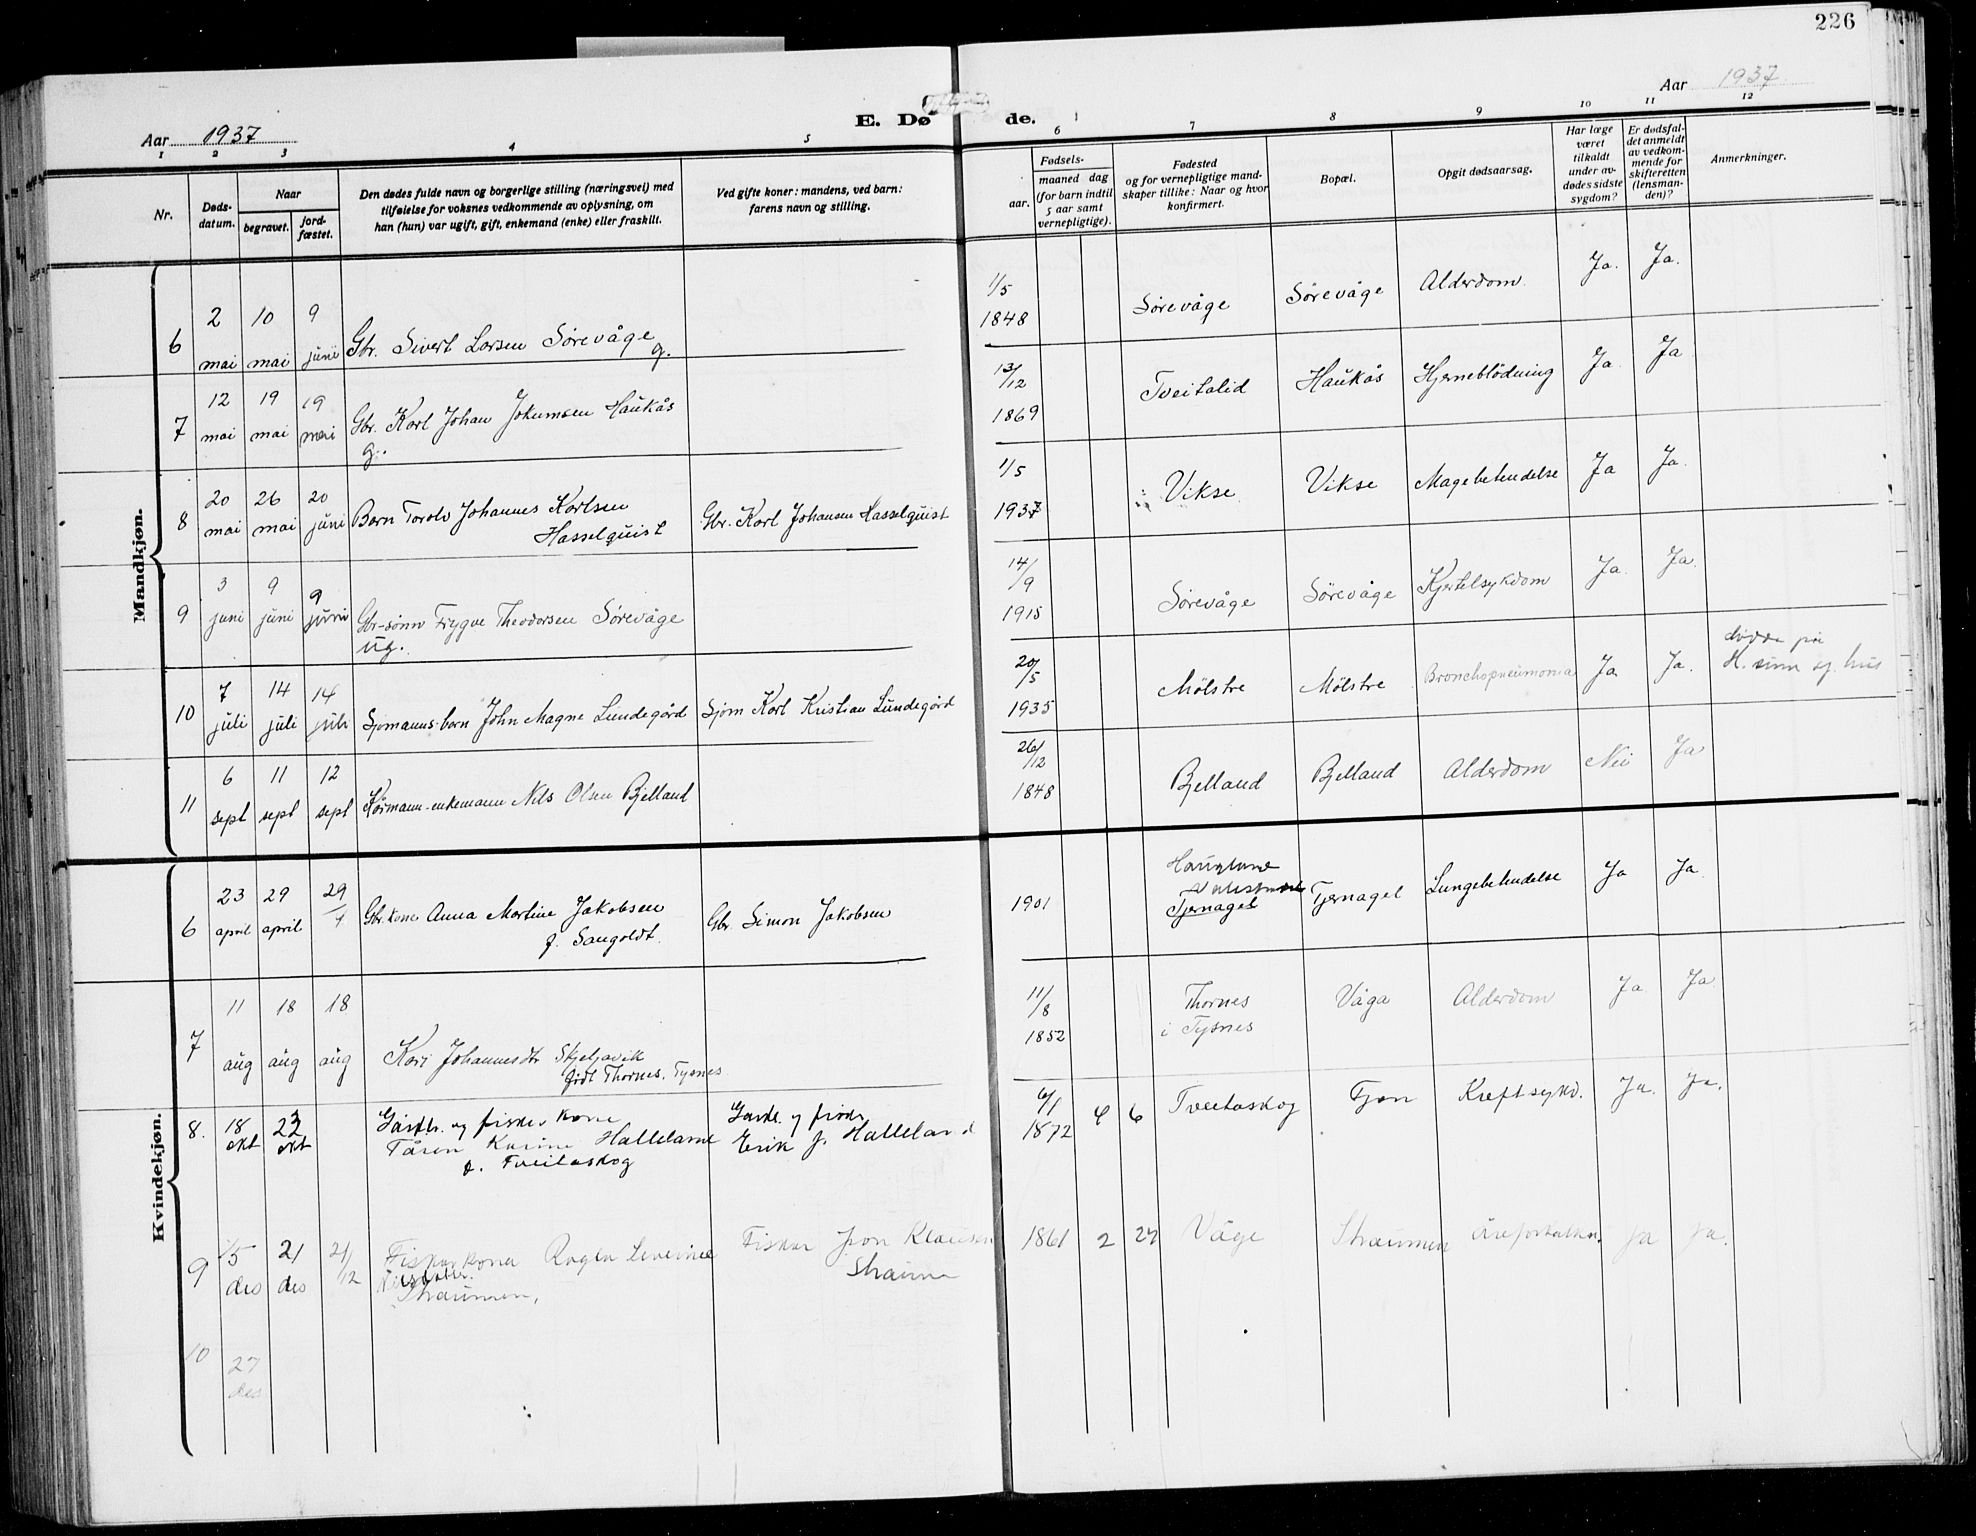 226
Aar 1937
Aar 1937
E. Dø de.
1 2 3 4 5 6 7 8 9 10 11 12
Nr.
Døds-
datum.
Naar
begravet.
jord-
fæstet.
Den dødes fulde navn og borgerlige stilling (næringsvei) med
tilføielse for voksnes vedkommende av oplysning, om
han (hun) var ugift, gift, enkemand (enke) eller fraskilt.
Ved gifte koner: mandens, ved barn:
farens navn og stilling.
Fødsels-
aar.
maaned dag
(for barn indtil
5 aar samt
vernepligtige).
Fødested
og for vernepligtige mand-
skaper tillike: Naar og hvor
konfirmert.
Bopæl.
Opgit dødsaarsag.
Har læge
været
tilkaldt
under av-
dødes sidste
sygdom?
Er dødsfal-
det anmeldt
av vedkom-
mende for
skifteretten
(lensman-
den)?
Anmerkninger.
Mandkjøn.
6 2 mai 10 mai 9 juni Gbr. Sivert Larsen Sørevåge g. 1/5 1848 Sørevåge Sørevåge Alderdom Ja. Ja.
7 12 mai 19 mai 19 mai Gbr. Karl Johan Jokumsen Haukås g. 13/12 1869 Tveitalid Haukås Hjerneblödning Ja Ja
8 20 mai 26 mai 20 juni Barn Torolv Johannes Karlsen Hasselquist Gbr. Karl Johansen Hasselquist 1/5 1937 Vikse Vikse Magebetendelse Ja Ja.
9 3 juni 9 juni 9 juni Gbr-sønn Trygve Theodorsen Sørevåge ug. 14/9 1915 Sørevåge Sørevåge Kjertelsykdom Ja. Ja.
10 7 juli 14 juli 14 juli Sjømanns-barn John Magne Lundegård Sjøm Karl Kristian Lundegård 20/5 1935 Mölstre Mölstre Bronchopneumonia Ja Ja. døde på H. sj. hus
11 6 sept 11 sept 12 sept Kårmann-enkemann Nils Olsen Bjelland 26/12 1848 Bjelland Bjelland Alderdom Nei Ja
Kvindekjøn.
6 23 april 29 april 29/4 Gbr.kone Anna Martine Jakobsen f. Sangoldt. Gbr. Simon Jakobsen 1901 Tjernagel Tjernagel Lungebetendelse Ja Ja.
7 11 aug 18 aug 18 aug Kari Johannesdtr Skjeljavik født Thornes, Tysnes 11/8 1852 Thornes i Tysnes Våga Alderdom Ja Ja
8. 18 okt 23 okt Gardbr. og fisker kone Tåren Karine Halleland f. Tveitaskog Gardbr. og fisker Erik J. Halleland 6/1 1872 4 6 Tveitaskog Tjon Kreftsykd. Ja. Ja.
9 15 des 21 des 21/12 Fiskarkona Ragla Severine Straumen, Fiskar Jon Klausen Straumen 1861 2 24 Våge Straumen Åreforkalkn. ja ja.
10 27 des